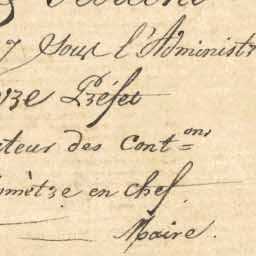 7 Sous l'Administr
Préfet
teur des Cont=ons
mètre en chef.
Maire.